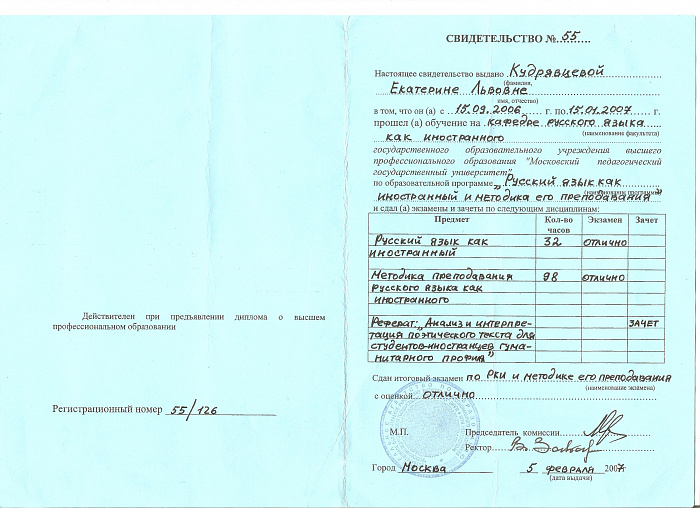 Действителен при предъявлении диплома о высшем
профессиональном образовании
Регистрационный номер 55/126
СВИДЕТЕЛЬСТВО № 55
Настоящее свидетельство выдано Кудрявцевой
(фамилия,
Екатерине Львовне
имя, отчество)
в том, что он (а) с 15.09.2006 г. по 15.01.2007 г.
прошел (а) обучение на кафедре русского языка
(наименование факультета)
как иностранного
государственного образовательного учреждения высшего
профессионального образования "Московский педагогический
государственный университет"
по образовательной программе „Русский язык как
(наименование программы)
иностранный и методика его преподавания"
и сдал (а) экзамены и зачеты по следующим дисциплинам:
Предмет Кол-во часов Экзамен Зачет
Русский язык как 32 отлично
иностранный
Методика преподавания 98 отлично
русского языка как
иностранного
Реферат: „Анализ и интерпре- зачет
тация поэтического текста для
студентов-иностранцев гума-
нитарного профиля"
Сдан итоговый экзамен по РКИ и методике его преподавания
(наименование экзамена)
с оценкой отлично
М.П. Председатель комиссии
Ректор
Город Москва 5 февраля 2007
(дата выдачи)